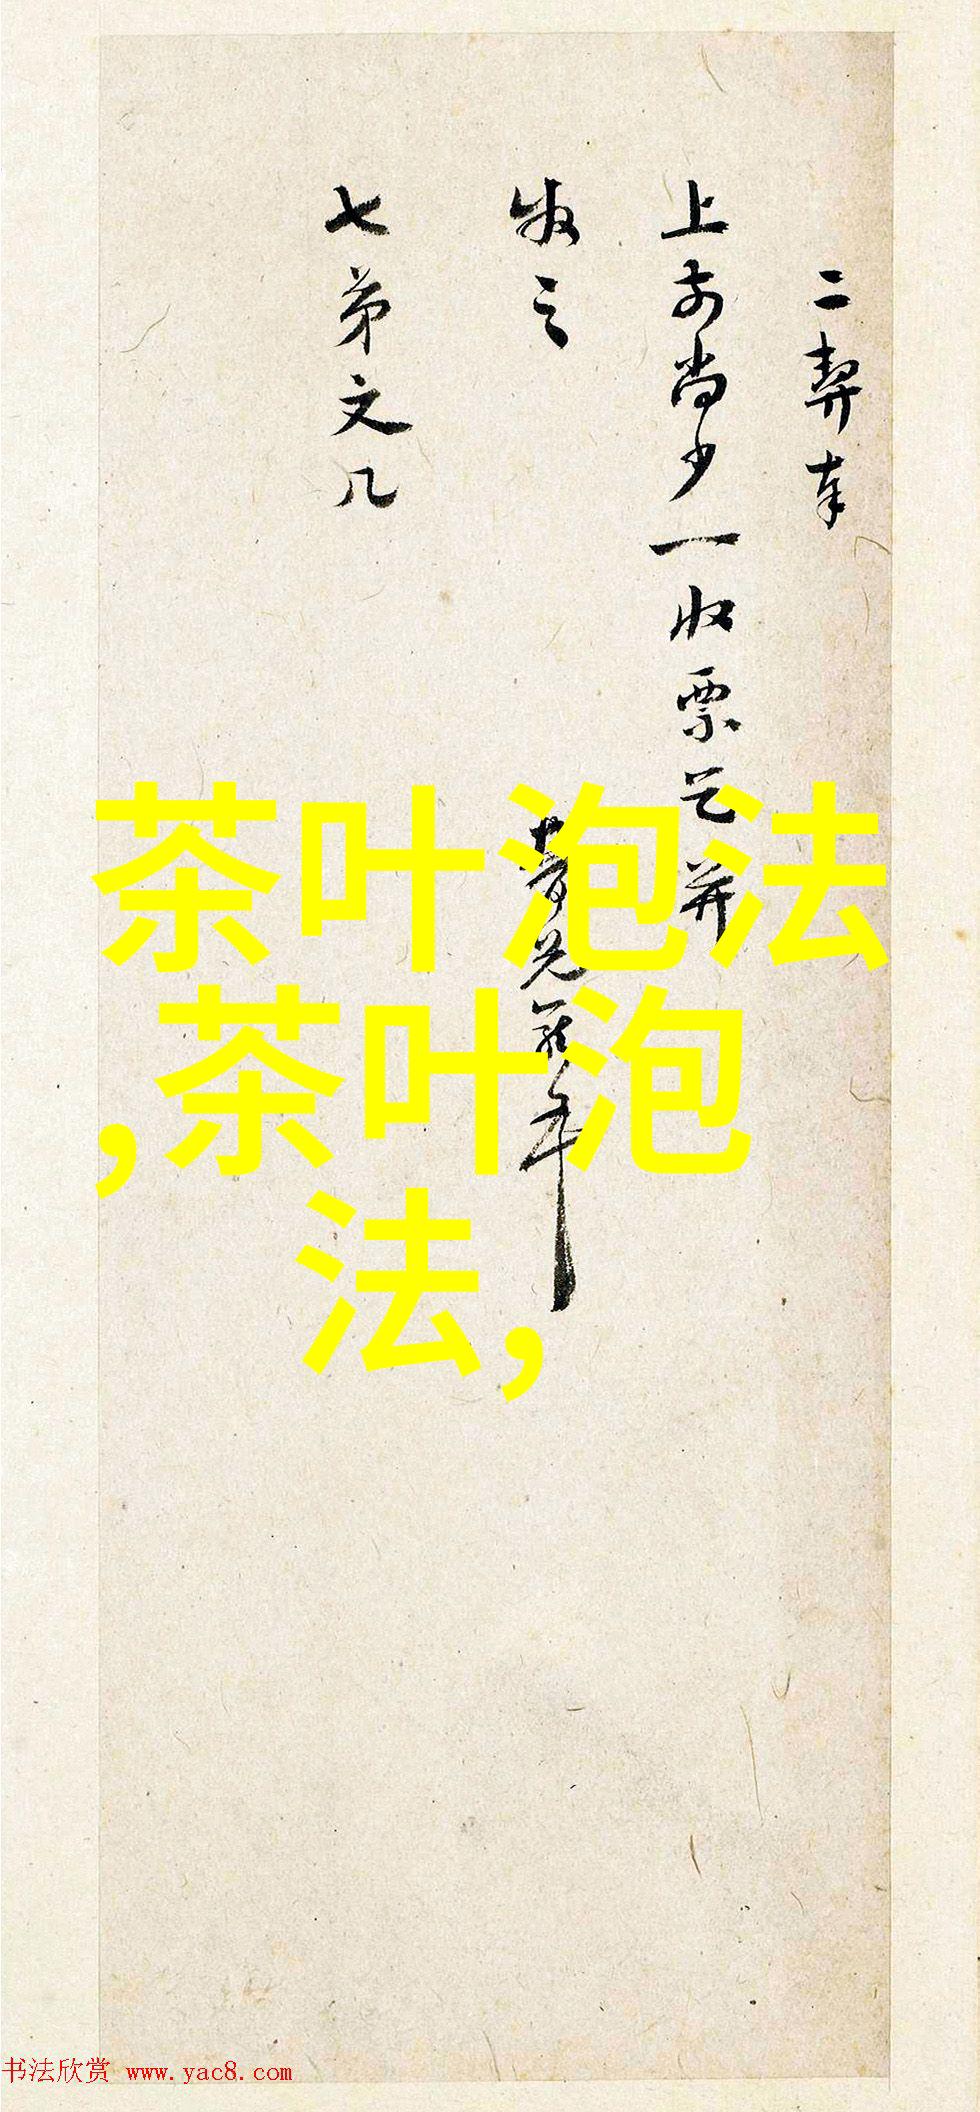 二契奉
上前尚少一收票乞并
收之
七弟文几
茶叶泡法
,茶叶泡
法,
书法欣赏 www.yac8.com